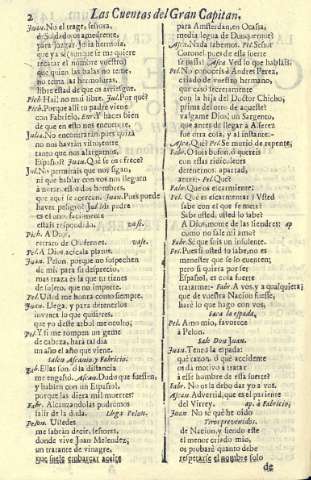 2 Las Cuentas del Gran Capitan.
Juan. No el trage, señora,
de Soldado os amedrente,
para juzgar à lo hermosa,
que ya sè (aunque le tar quiere
recatar el nombre vueſtro)
que quien las balas no teme,
no temais las hermosuras
libre eſtad de que os arriesgue.
Pich. Hail, no mui libre. Jul. Por què?
Pich. Porque alli tu padre viene
con Fabricio, Señor. Y haces bien
de que en eſto nos encuentre.
Julia. No encontrarán, pues quizà
no nos havrán viſto,vente,
tanto que nos alarguemos.
Eſpañol? Juan. Què se os ofrece?
Jul. No permitais que nos ſigan,
ni que hablar con vos nos lleguen
à notar, eſſos dos hombres,
que aqui ſe acercan. Juan. Pues puede
haver peligro? Jul. Mi padre
es el uno, facilmente
eſtais reſpondido. vaſe.
Pich. A Dios,
retrato de Olofernes. vaſe.
Pel. A Dios acicala planes.
Juan. Pelon. porque no ſoſpechen
de mi, para ſu deſprecio,
mas traza es la que tu tienes
de ſujero, que no importe.
Pel. Uſted me honra como siempre.
Juan. Llega, y para detenerlos
inventa lo que quiſieres,
que yo deſde arbol me oculto;
Pel. Y ſi me rompen un geme
de cabeza, harà tal dia
un año el año que viene.
Salen Aſcanio, y Fabricio.
Fab. Ellas ſon, ò la diſtancia
me engañò. Aſcan. Dudo que fueſſen,
y hablàran con un Eſpañol,
porque las diera mil muertes!
Fabr. Alcanzandolas podrèmos
ſalir de la duda. Llega Pelon.
Pelon. Uſtedes
me ſabràn decir, ſeñores,
donde vive Juan Melendez,
un tratante de vinagre,
que ſuele embarcar aceite
para Amſterdan, en Ocaſia,
media legua de Dunquerque?
Aſcan. Nada ſabemos. Pel. Señor
Coronel, pues de eſſa ſuerte
ſe apaſſiona? Aſca. Ved lo que hablais.
Pel. No conoceis à Andres Perez,
criado de vueſtro hermano,
que casò ſecretamente
con la hija del Doctor Chicho,
prima del otro de aquelle?
valgame Dios! un Sargento,
que antes de llegar à Añerez
fue otra coſa, y al inſtante-
Aſca. Què? Pel. Se murio de repente.
Fabr. O ſois bufon, ò quereis
con eſſas ridiculeces
detenernos: apartad,
atento. Pel. Què?
Fabr. Que os eſcarmiente.
Pel. Què es eſcarmentar? Uſted
ſabe con el que ſe mete?
Sabe uſted, uſted lo ſabe?
A Dios, monte de las tiendas: ap
como no ſale mi amo?
Fabr. Sè que ſois un inſolente.
Pel. Pues ſi uſted lo ſabe, no es
meneſter que ſe lo cuenten;
pero ſi quiera por ſer
Eſpañol, es coſa fuerte
tratarme- Fabr. A vos, y à qualquiera
que de vueſtra Nacion fueſſe,
harè lo que hago con vos.
Saca la eſpada.
Pel. Amo mio, favorece
à Pelon.
Sale Don Juan.
Juan. Tenèd la eſpada:
què razon, ò què accidente
os dà motivo à tratar
à eſſe hombre de eſſa ſuerte?
Fabr. No os la debo dar yo à vos.
Aſcan. Advertid, que es el pariente
del Virrey. ap. à Fabricio.
Juan. No sè què he oìdo
Tros prevenidos.
de Nacion, y ſiendo eſte
el menor criado mio,
os probarà quanto debe
reſpetarſe el nombre ſolo
de